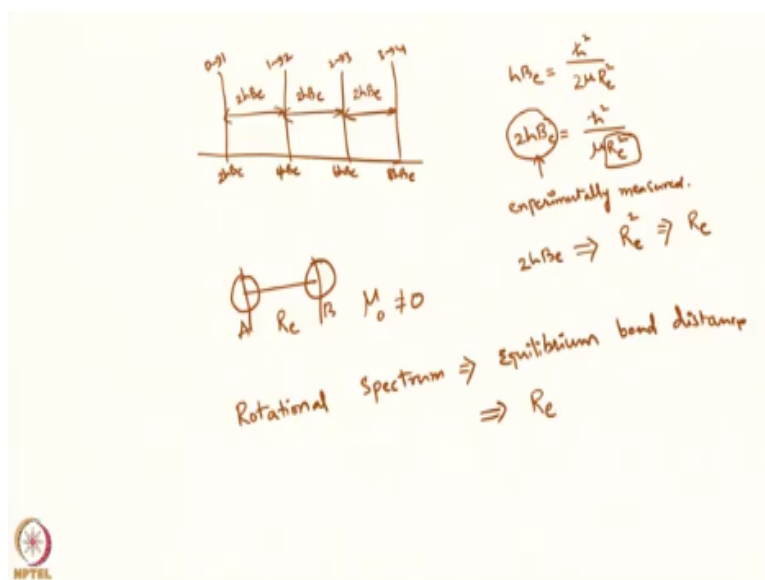 0→1 1→2 2→3 3→4
2hBe 2hBe 2hBe
2hBe 4hBe 6hBe 8hBe
hBe = ℏ² / 2μRe²
2hBe = ℏ² / μRe²
experimentally measured.
2hBe ⇒ Re² ⇒ Re
A Re B μ₀ ≠ 0
Rotational Spectrum ⇒ Equilibrium bond distance
⇒ Re
NPTEL